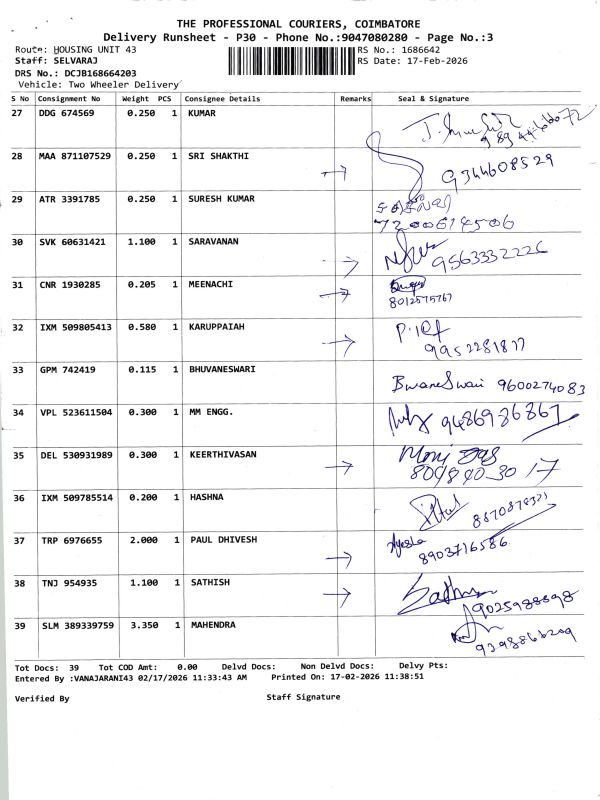 THE PROFESSIONAL COURIERS, COIMBATORE
Delivery Runsheet - P30 - Phone No.:9047080280 - Page No.:3
Route: HOUSING UNIT 43 RS No.: 1686642
Staff: SELVARAJ RS Date: 17-Feb-2026
DRS No.: DCJB168664203
Vehicle: Two Wheeler Delivery
S No Consignment No Weight PCS Consignee Details Remarks Seal & Signature
27 DDG 674569 0.250 1 KUMAR
28 MAA 871107529 0.250 1 SRI SHAKTHI 9344608529
29 ATR 3391785 0.250 1 SURESH KUMAR
7200614506
30 SVK 60631421 1.100 1 SARAVANAN 9563332226
31 CNR 1930285 0.205 1 MEENACHI
8012575767
32 IXM 509805413 0.580 1 KARUPPAIAH
9952281817
33 GPM 742419 0.115 1 BHUVANESWARI BwaneSwari 9600274083
34 VPL 523611504 0.300 1 MM ENGG. 9486986867
35 DEL 530931989 0.300 1 KEERTHIVASAN
8098403017
36 IXM 509785514 0.200 1 HASHNA
37 TRP 6976655 2.000 1 PAUL DHIVESH
8903716586
38 TNJ 954935 1.100 1 SATHISH
9025988898
39 SLM 389339759 3.350 1 MAHENDRA
Tot Docs: 39 Tot COD Amt: 0.00 Delvd Docs: Non Delvd Docs: Delvy Pts:
Entered By :VANAJARANI43 02/17/2026 11:33:43 AM Printed On: 17-02-2026 11:38:51
Verified By Staff Signature